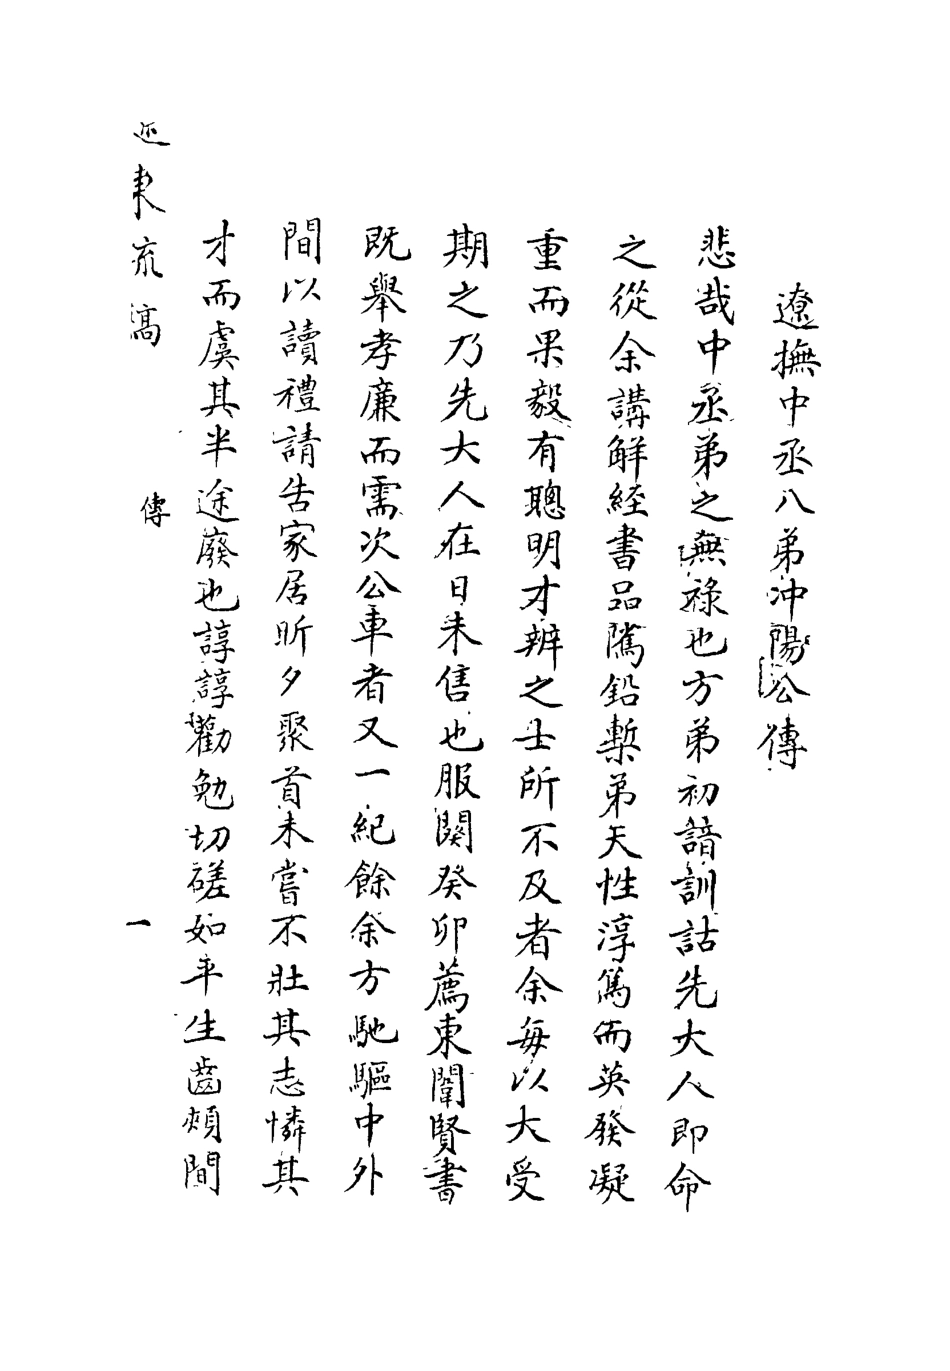 遼撫中丞八弟沖陽公傳
悲哉中丞弟之無祿也方弟初諳訓詁先大人即命
之從余講解經書品隲鉛槧弟天性淳篤而英發凝
重而果毅有聰明才辨之士所不及者余每以大受
期之乃先大人在日未售也服闋癸卯薦東闈賢書
既舉孝廉而需次公車者又一紀餘余方馳驅中外
間以讀禮請告家居昕夕聚首未嘗不壯其志憐其
才而虞其半途廢也諄諄勸勉切磋如平生齒頰間
東 傳 一